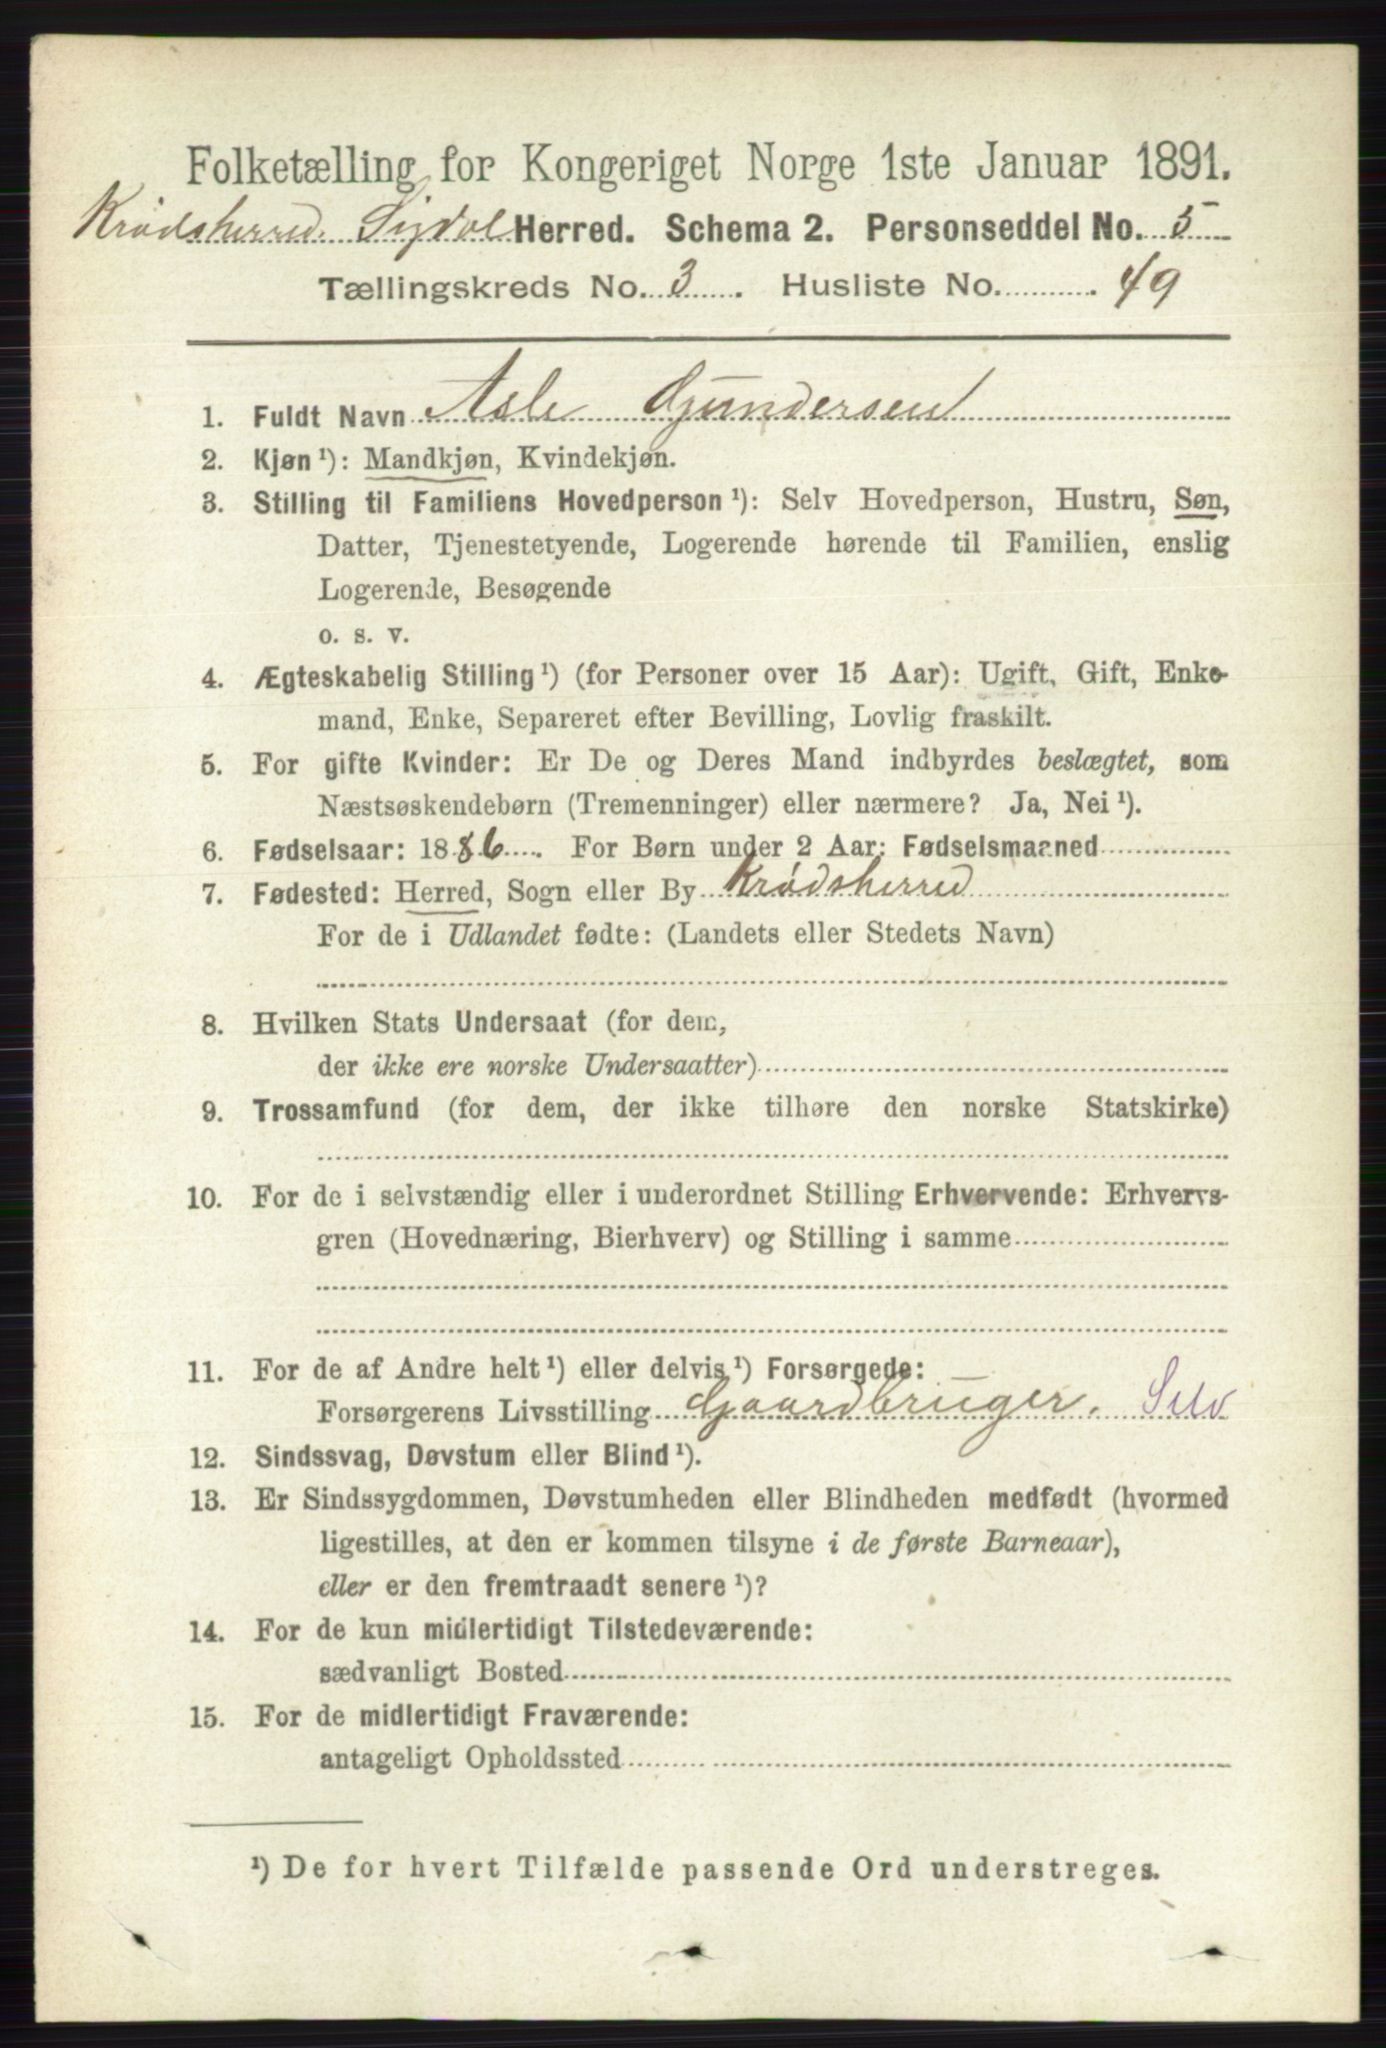 Folketælling for Kongeriget Norge 1ste Januar 1891.
Krødsherred. Sigdal Herred. Schema 2. Personseddel No. 5
Tællingskreds No. 3. Husliste No. 49
1. Fuldt Navn Asle Gundersen
2. Kjøn ¹): Mandkjøn, Kvindekjøn.
3. Stilling til Familiens Hovedperson ¹): Selv Hovedperson, Hustru, Søn,
Datter, Tjenestetyende, Logerende hørende til Familien, enslig
Logerende, Besøgende
o. s. v.
4. Ægteskabelig Stilling ¹) (for Personer over 15 Aar): Ugift, Gift, Enke-
mand, Enke, Separeret efter Bevilling, Lovlig fraskilt.
5. For gifte Kvinder: Er De og Deres Mand indbyrdes beslægtet, som
Næstsøskendebørn (Tremenninger) eller nærmere? Ja, Nei ¹).
6. Fødselsaar: 1886. For Børn under 2 Aar: Fødselsmaaned
7. Fødested: Herred, Sogn eller By Krødsherred
For de i Udlandet fødte: (Landets eller Stedets Navn)
8. Hvilken Stats Undersaat (for dem,
der ikke ere norske Undersaatter)
9. Trossamfund (for dem, der ikke tilhøre den norske Statskirke)
10. For de i selvstændig eller i underordnet Stilling Erhvervende: Erhvervs-
gren (Hovednæring, Bierhverv) og Stilling i samme
11. For de af Andre helt ¹) eller delvis ¹) Forsørgede:
Forsørgerens Livsstilling Gaardbruger. Selv
12. Sindssvag, Døvstum eller Blind ¹).
13. Er Sindssygdommen, Døvstumheden eller Blindheden medfødt (hvormed
ligestilles, at den er kommen tilsyne i de første Barneaar),
eller er den fremtraadt senere ¹)?
14. For de kun midlertidigt Tilstedeværende:
sædvanligt Bosted
15. For de midlertidigt Fraværende:
antageligt Opholdssted
¹) De for hvert Tilfælde passende Ord understreges.